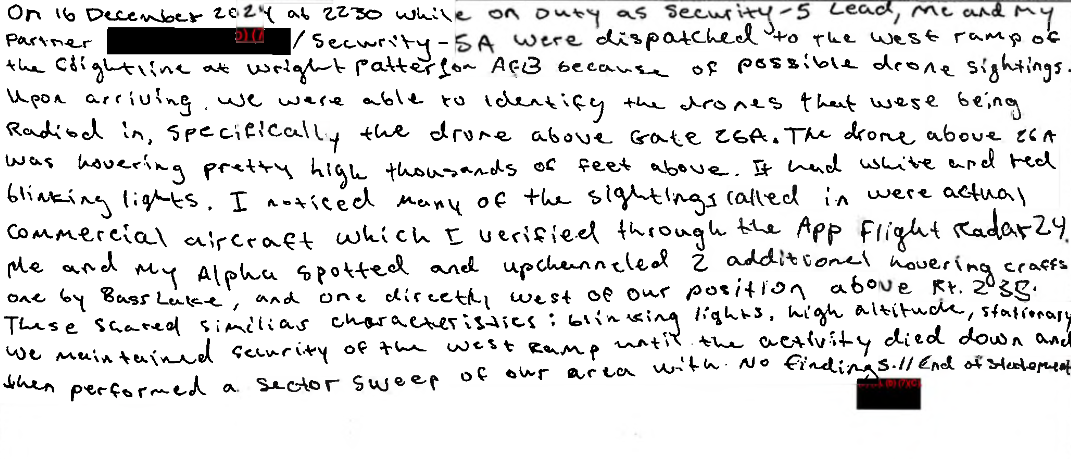 On 16 December 2024 at 2230 while on Duty as Security-5 Lead, Me and My
Partner / Security-5A were dispatched to the west ramp of
the flightline at Wright Patterson AFB because of possible drone sightings.
Upon arriving, we were able to identify the drones that were being
Radiod in, specifically the drone above Gate 26A. The drone above 26A
was hovering pretty high thousands of feet above. It had white and red
blinking lights. I noticed many of the sightings called in were actual
commercial aircraft which I verified through the App Flight Radar24.
Me and My Alpha spotted and upchanneled 2 additional hovering crafts
one by Bass Lake, and one directly west of our position above Rt. 235.
These shared similiar characteristics: blinking lights, high altitude, stationary
we maintained security of the west Ramp until the activity died down and
then performed a sector sweep of our area with No findings.// End of statement